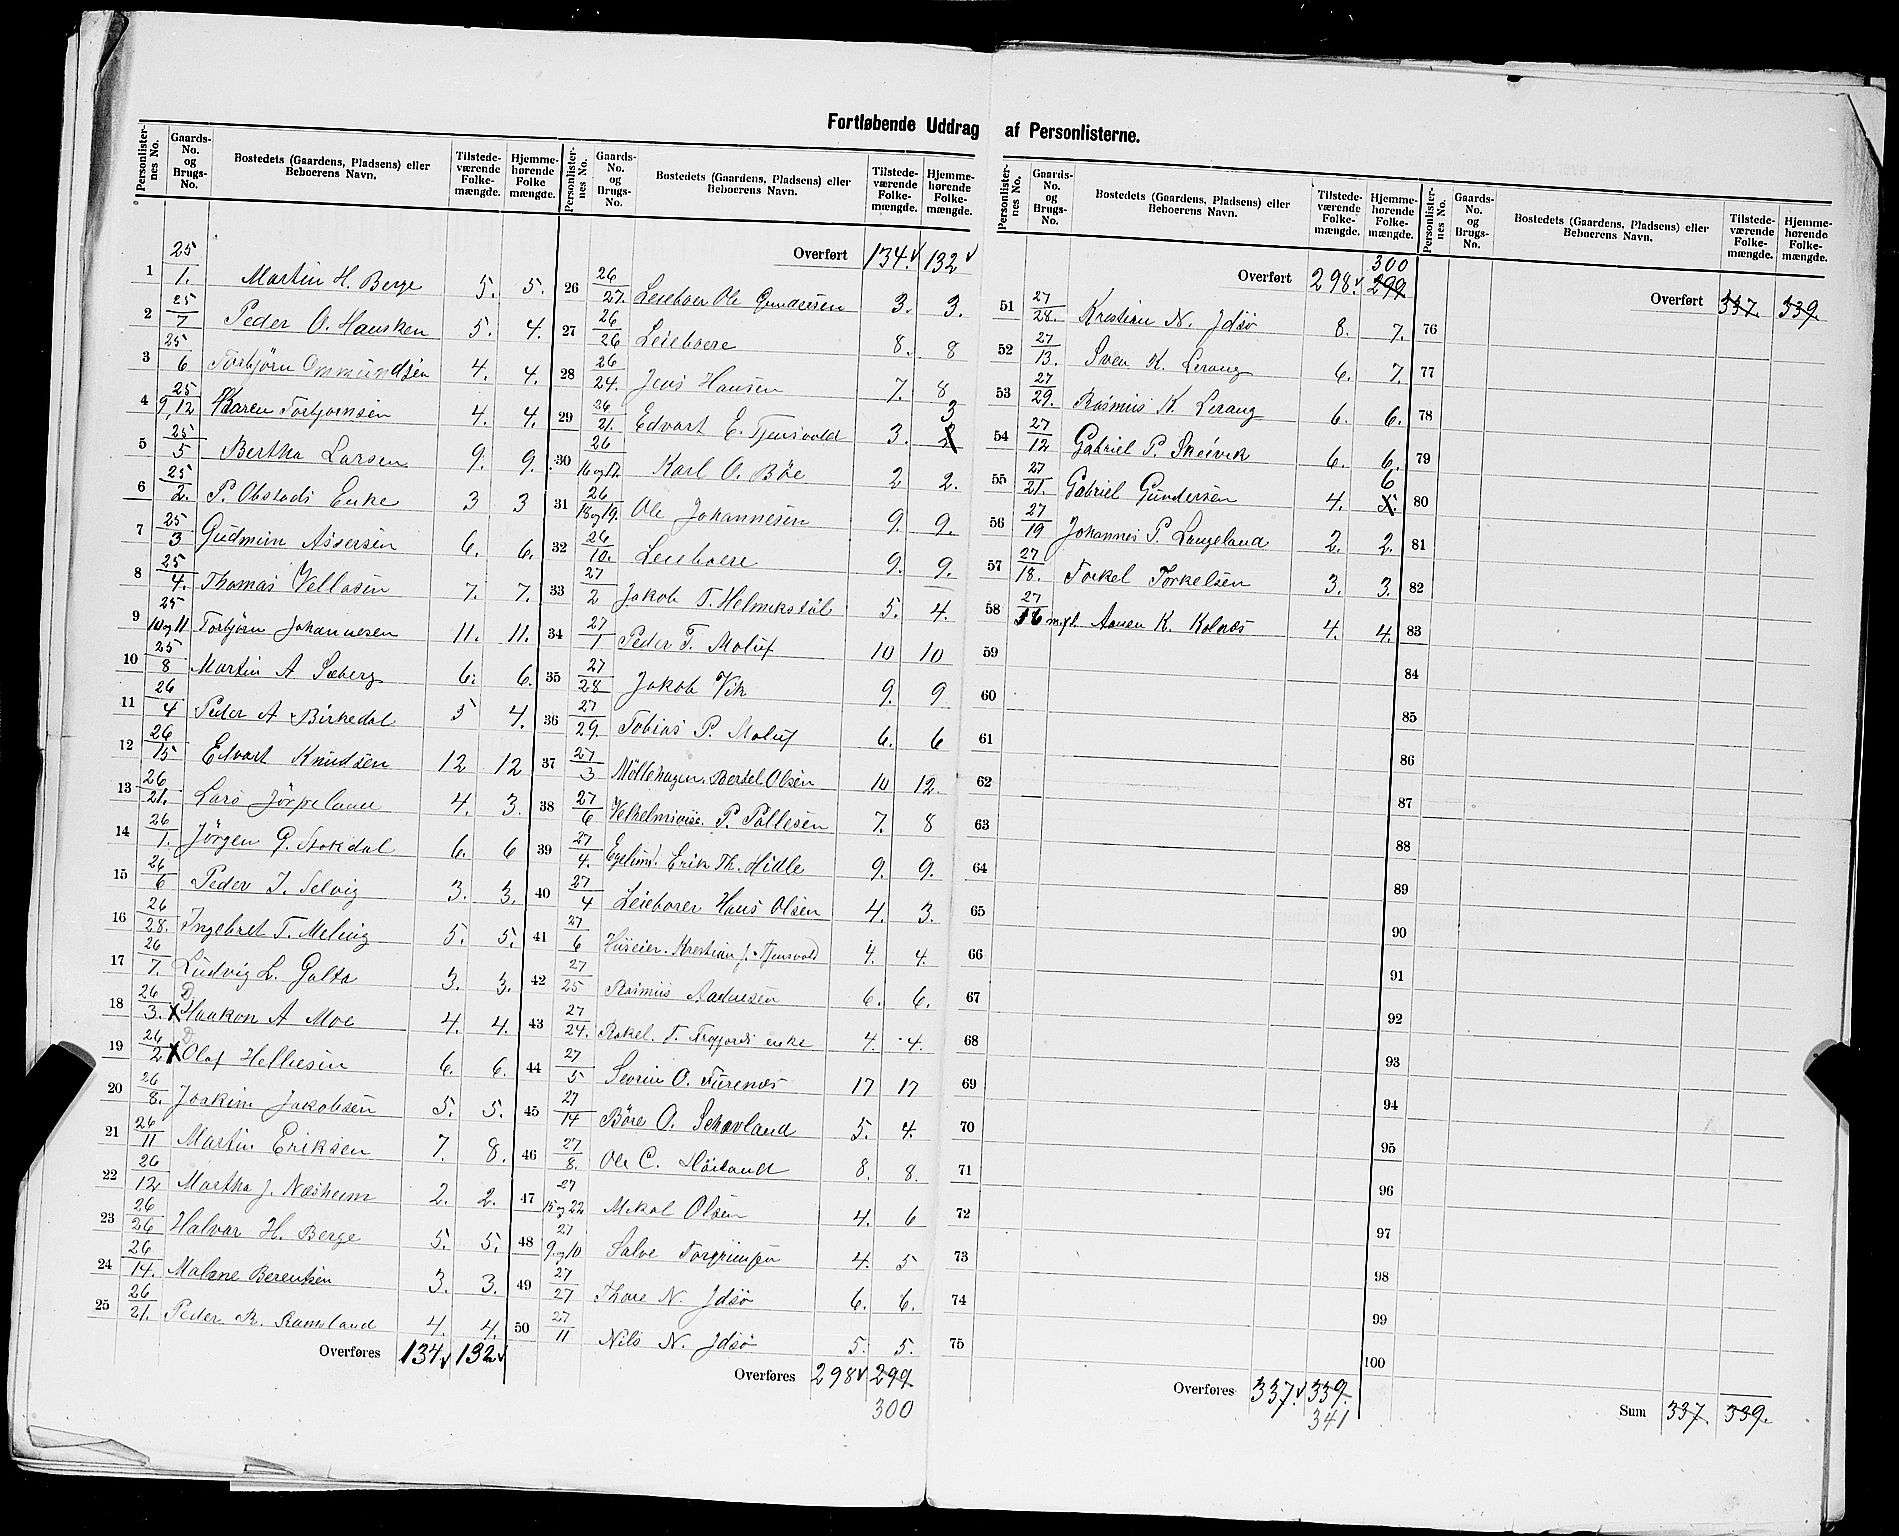 Fortløbende Uddrag af Personlisterne.
Personlister-nes No. Gaards-No. og Brugs-No. Bostedets (Gaardens, Pladsens) eller Beboerens Navn. Tilstede-værende Folke-mængde. Hjemme-hørende Folke mængde.
1 25/1. Martin H. Berge 5. 5.
2 25/7 Peder O. Hausken 5. 4.
3 25/6 Torbjørn Ommundsen 4. 4.
4 25/9,12 Karen Torbjørnsen 4. 4.
5 25/5 Bertha Larsen 9. 9.
6 25/2. P. Obstads Enke 3 3
7 25/3 Gudmun Assersen 6. 6.
8 25/4. Thomas Vellasen 7. 7.
9 25/10 og 11 Torbjørn Johannesen 11. 11.
10 25/8 Martin A Soeberg 6. 6.
11 26/4 Peder A Birkedal 5 4.
12 26/15 Edvart Knudsen 12 12
13 26/21. Lars Jørpeland 4. 3.
14 26/1. Jörgen G. Stokdal 6. 6
15 26/6 Peder J. Selvig 3. 3.
16 26/28. Ingebret T. Meling 5. 5.
17 26/7. Ludvig L. Galta 3. 3.
18 26/3. X D Haakon A Moe 4. 4.
19 26/2 X D Olaf Helliesen 6. 6.
20 26/8. Joakim Jakobsen 5. 5.
21 26/11 Martin Eriksen 7. 8.
22 26/12 Martha J. Næsheim 2. 2.
23 26/26 Halvar H. Berge 5. 5.
24 26/14. Malene Berentsen 3. 3.
25 26/21. Peder R. Ramsland 4. 4.
Overføres 134 132
Personlister-nes No. Gaards-No. og Brugs-No. Bostedets (Gaardens, Pladsens) eller Beboerens Navn. Tilstede-værende Folke-mængde. Hjemme-hørende Folke-mængde.
Overført 134. 132
26 26/27. Leieboer Ole Gundersen 3. 3.
27 26/26 Leieboere 8. 8
28 26/24. Jens Hansen 7. 8
29 26/21. Edvart E. Tjensvold 3. 2 3
30 26/16 og 17. Karl O. Bøe 2 2.
31 26/18 og 19. Ole Johannesen 9. 9.
32 26/10. Leieboere 9. 9.
33 27/2 Jakob T. Helmikstøl 5. 4.
34 27/1 Peder T. Moluf 10 10
35 27/28 Jakob Vik 9. 9
36 27/29. Tobias P. Moluf 6. 6
37 27/3 Möllehagen. Berdel Olsen 10 12.
38 27/6 P. Pallesen 7. 8
39 27/4. Egelund. Erik Th. Hidle 9. 9.
40 27/4 Leieboer Hans Olsen 4. 3.
41 27/6 Huseier. Krestian J. Tjensvold 4. 4.
42 27/25 Rasmus Aadnesen 6. 6.
43 27/24. Rakel. T. Frafjords enke 4. 4.
44 27/5 Sevrin O. Furenæs 17 17
45 27/14 Böre O. Schavland 5. 4.
46 27/8. Ole C. Høiland 8. 8.
47 27/15 og 22 Mikal Olsen 4. 6
48 27/9 og 10 Salve Torgrimsen 4. 5
49 27/27 Thore N. Idsø 6. 6.
50 27/11 Nils N. Idsø 5. 5.
Overføres 298 299
300
Personlister-nes No. Gaards-No. og Brugs-No. Bostedets (Gaardens, Pladsens) eller Beboerens Navn. Tilstede-værende Folke-mængde. Hjemme-hørende Folke-mængde.
300
Overført 298. 299
51 27/28. Krestian N. Idsø 8. 7.
52 27/13. Sven K. Lerang 6. 7.
53 27/29. Rasmus K. Lerang 6. 6.
54 27/12 Gabriel P. Skeivik 6. 6.
55 27/21. Gabriel Gundersen 4. 5. 6
56 27/19 Johannes P. Langeland 2. 2.
57 27/18. Torkel Torkelsen 3. 3.
58 27/16 m.fl. Aanen K. Kolnes 4. 4.
59
60
61
62
63
64
65
66
67
68
69
70
71
72
73
74
75
Overføres 337. 339.
341
Personlister-nes No. Gaards-No. og Brugs-No. Bostedets (Gaardens, Pladsens) eller Beboerens Navn. Tilstede-værende Folke-mængde. Hjemme-hørende Folke-mængde.
Overført 337. 339.
76
77
78
79
80
81
82
83
84
85
86
87
88
89
90
91
92
93
94
95
96
97
98
99
100
Sum 337. 339.